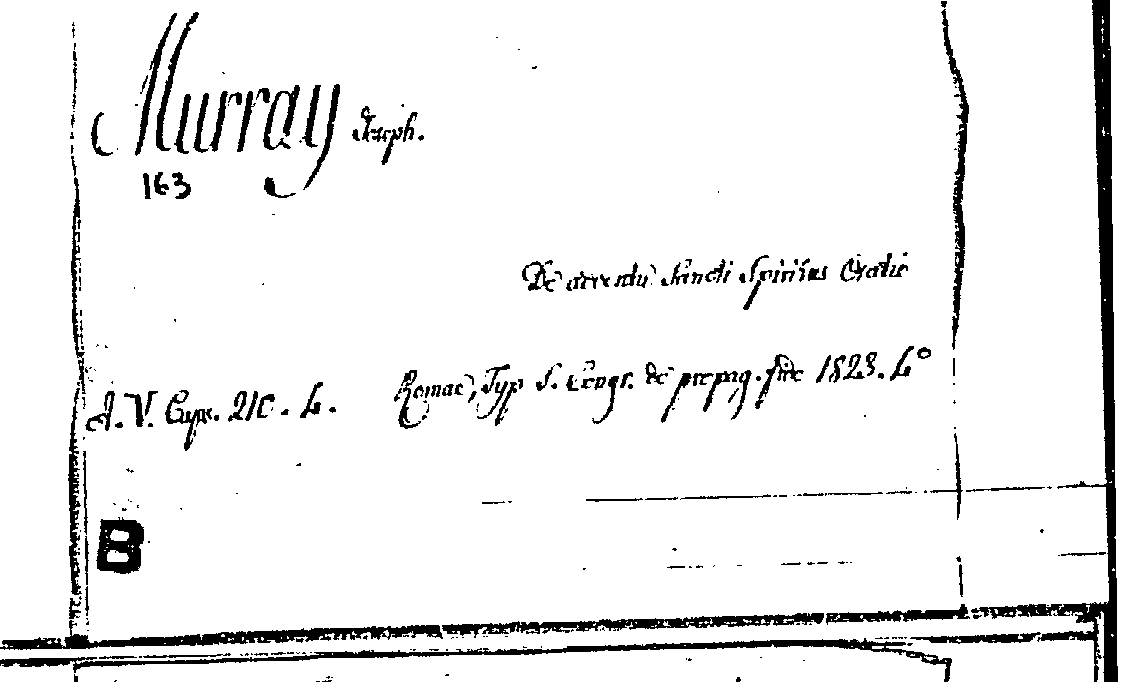 Murray Joseph.
163
De adventu Sancti Spiritus Oratio
A. V. Caps. 210. 4. Romae, Typ S. Congr. de propag. fide 1823. 4°
B